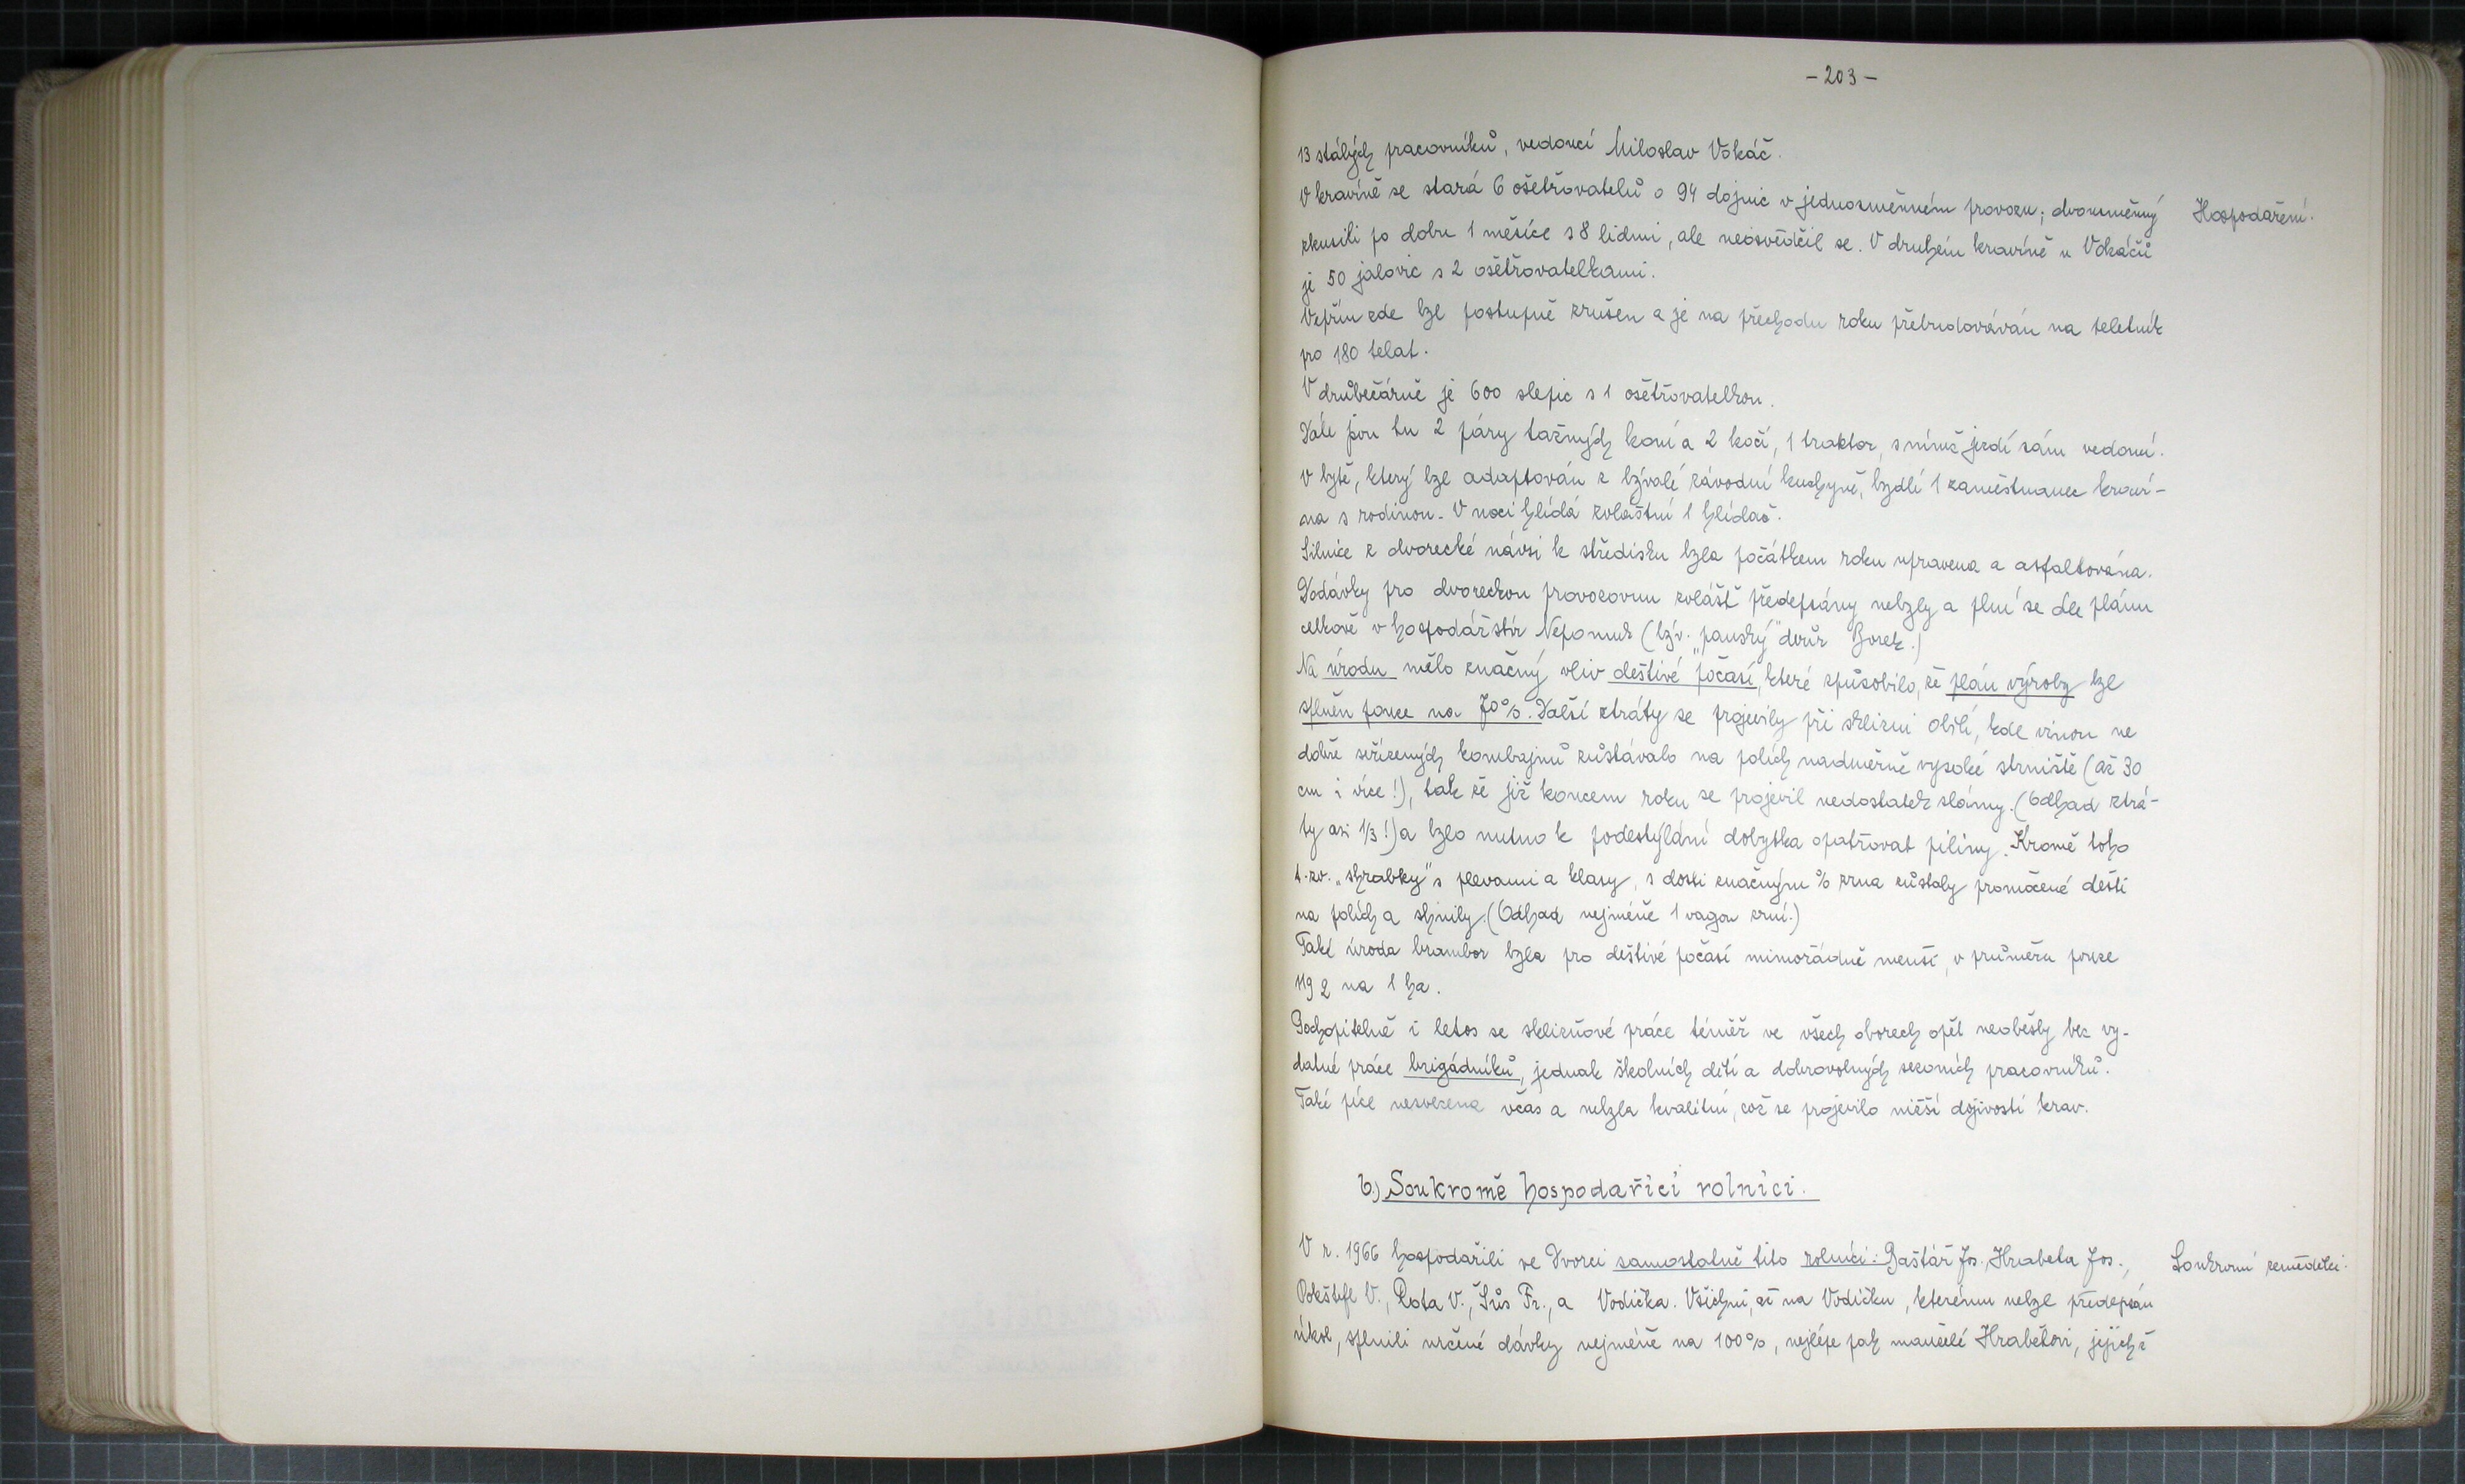 – 203 –
13 stálých pracovníků, vedoucí Miloslav Vokáč.
V kravíně se stará 6 ošetřovatelů o 94 dojnic v jednosměnném provozu; dvousměnný
Hospodaření.
zkusili po dobu 1 měsíce s 8 lidmi, ale neosvědčil se. V druhém kravíně u Vokáčů
je 50 jalovic s 2 ošetřovatelkami.
Vepřín zde byl postupně zrušen a je na přechodu roku přebudováván na teletník
pro 180 telat.
V drůbežárně je 600 slepic s 1 ošetřovatelkou.
Dále jsou tu 2 páry tažných koní a 2 kočí, 1 traktor, s nímž jezdí sám vedoucí.
V bytě, který byl adaptován z bývalé závodní kuchyně, bydlí 1 zaměstnanec kraví-
na s rodinou. V noci hlídá zvláštní 1 hlídač.
Silnice z dvorecké návsi k středisku byla počátkem roku upravena a asfaltována.
Dodávky pro dvoreckou provozovnu zvlášť předepsány nebyly a plní se dle plánu
celkově v hospodářství Nepomuk (býv. „panský" dvůr Borek.)
Na úrodu mělo značný vliv deštivé počasí, které způsobilo, že plán výroby byl
splněn pouze na 70%. Další ztráty se projevily při sklizni obilí, kde vinou ne
dobře seřízených kombajnů zůstávalo na polích nadměrně vysoké strniště (až 30
cm i více!), tak že již koncem roku se projevil nedostatek slámy. (Odhad ztrá-
ty asi 1/3!) a bylo nutno k podestýlání dobytka opatřovat piliny. Kromě toho
t. zv. „shrabky" s plevami a klasy, s dosti značným % zrna zůstaly promočené dešti
na polích a shnily. (Odhad nejméně 1 vagon zrní.)
Také úroda brambor byla pro deštivé počasí mimořádně menší, v průměru pouze
119 q na 1 ha.
Pochopitelně i letos se sklizňové práce téměř ve všech oborech opět neobešly bez vy-
datné práce brigádníků, jednak školních dětí a dobrovolných sezoních pracovníků.
Také píce nesvezena včas a nebyla kvalitní, což se projevilo nižší dojivostí krav.
b.) Soukromě hospodařící rolníci.
V r. 1966 hospodařili ve Dvorci samostatně tito rolníci: Baštář Jos., Hrabeta Jos.,
Soukromí zemědělci.
Pokštefl V., Rota V., Šůs Fr., a Vodička. Všichni, až na Vodičku, kterému nebyl předepsán
úkol, splnili určené dávky nejméně na 100%, nejlépe pak manželé Hrabětovi, jejichž